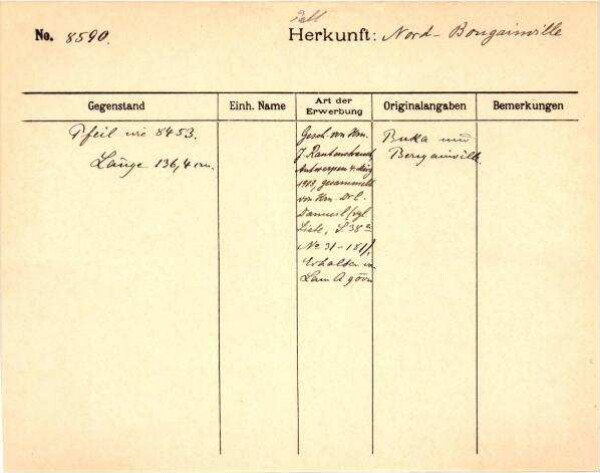 No. 8590.
Herkunft: Nord-Bougainville
Gegenstand
Einh. Name
Art der
Erwerbung
Originalangaben
Bemerkungen
Pfeil wie 8453.
Länge 136,4 cm.
Gesch. von Hrn.
J. Rautenstrauch
Antwerpen
1913, gesammelt
von Hrn. Dr. E.
vgl.
Liste, S 38a
No 31-181),
Erhalten
Buka und
Bougainville.